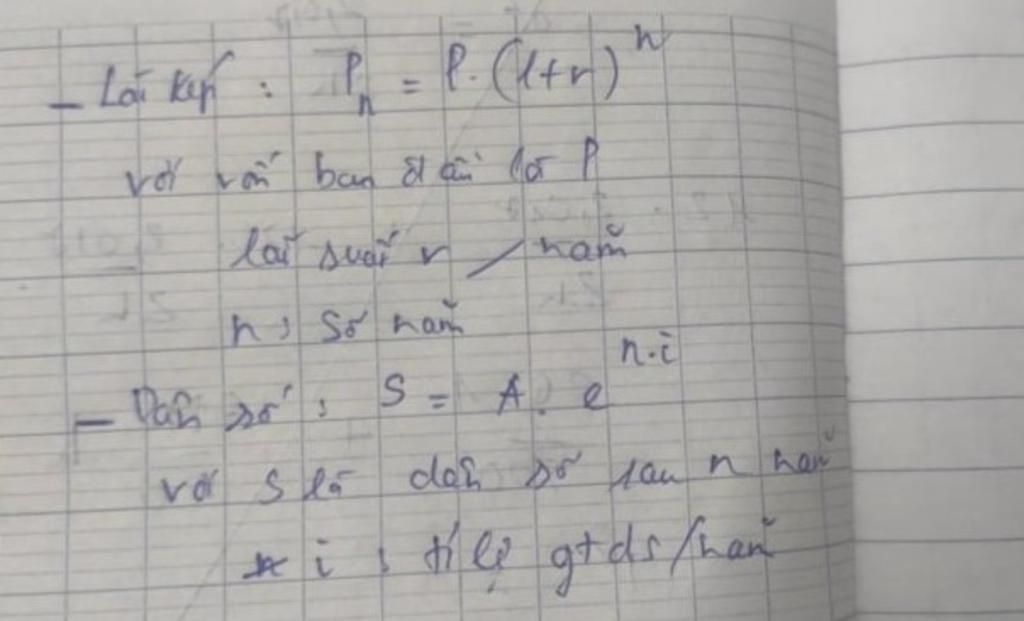 - Lãi kép : Pn = P. (1+r)^n
với vốn ban đầu là P
lãi suất r / năm
n : số năm
- Dân số : S = A. e^n.i
với S là dân số sau n năm
i : tỉ lệ gtds/năm